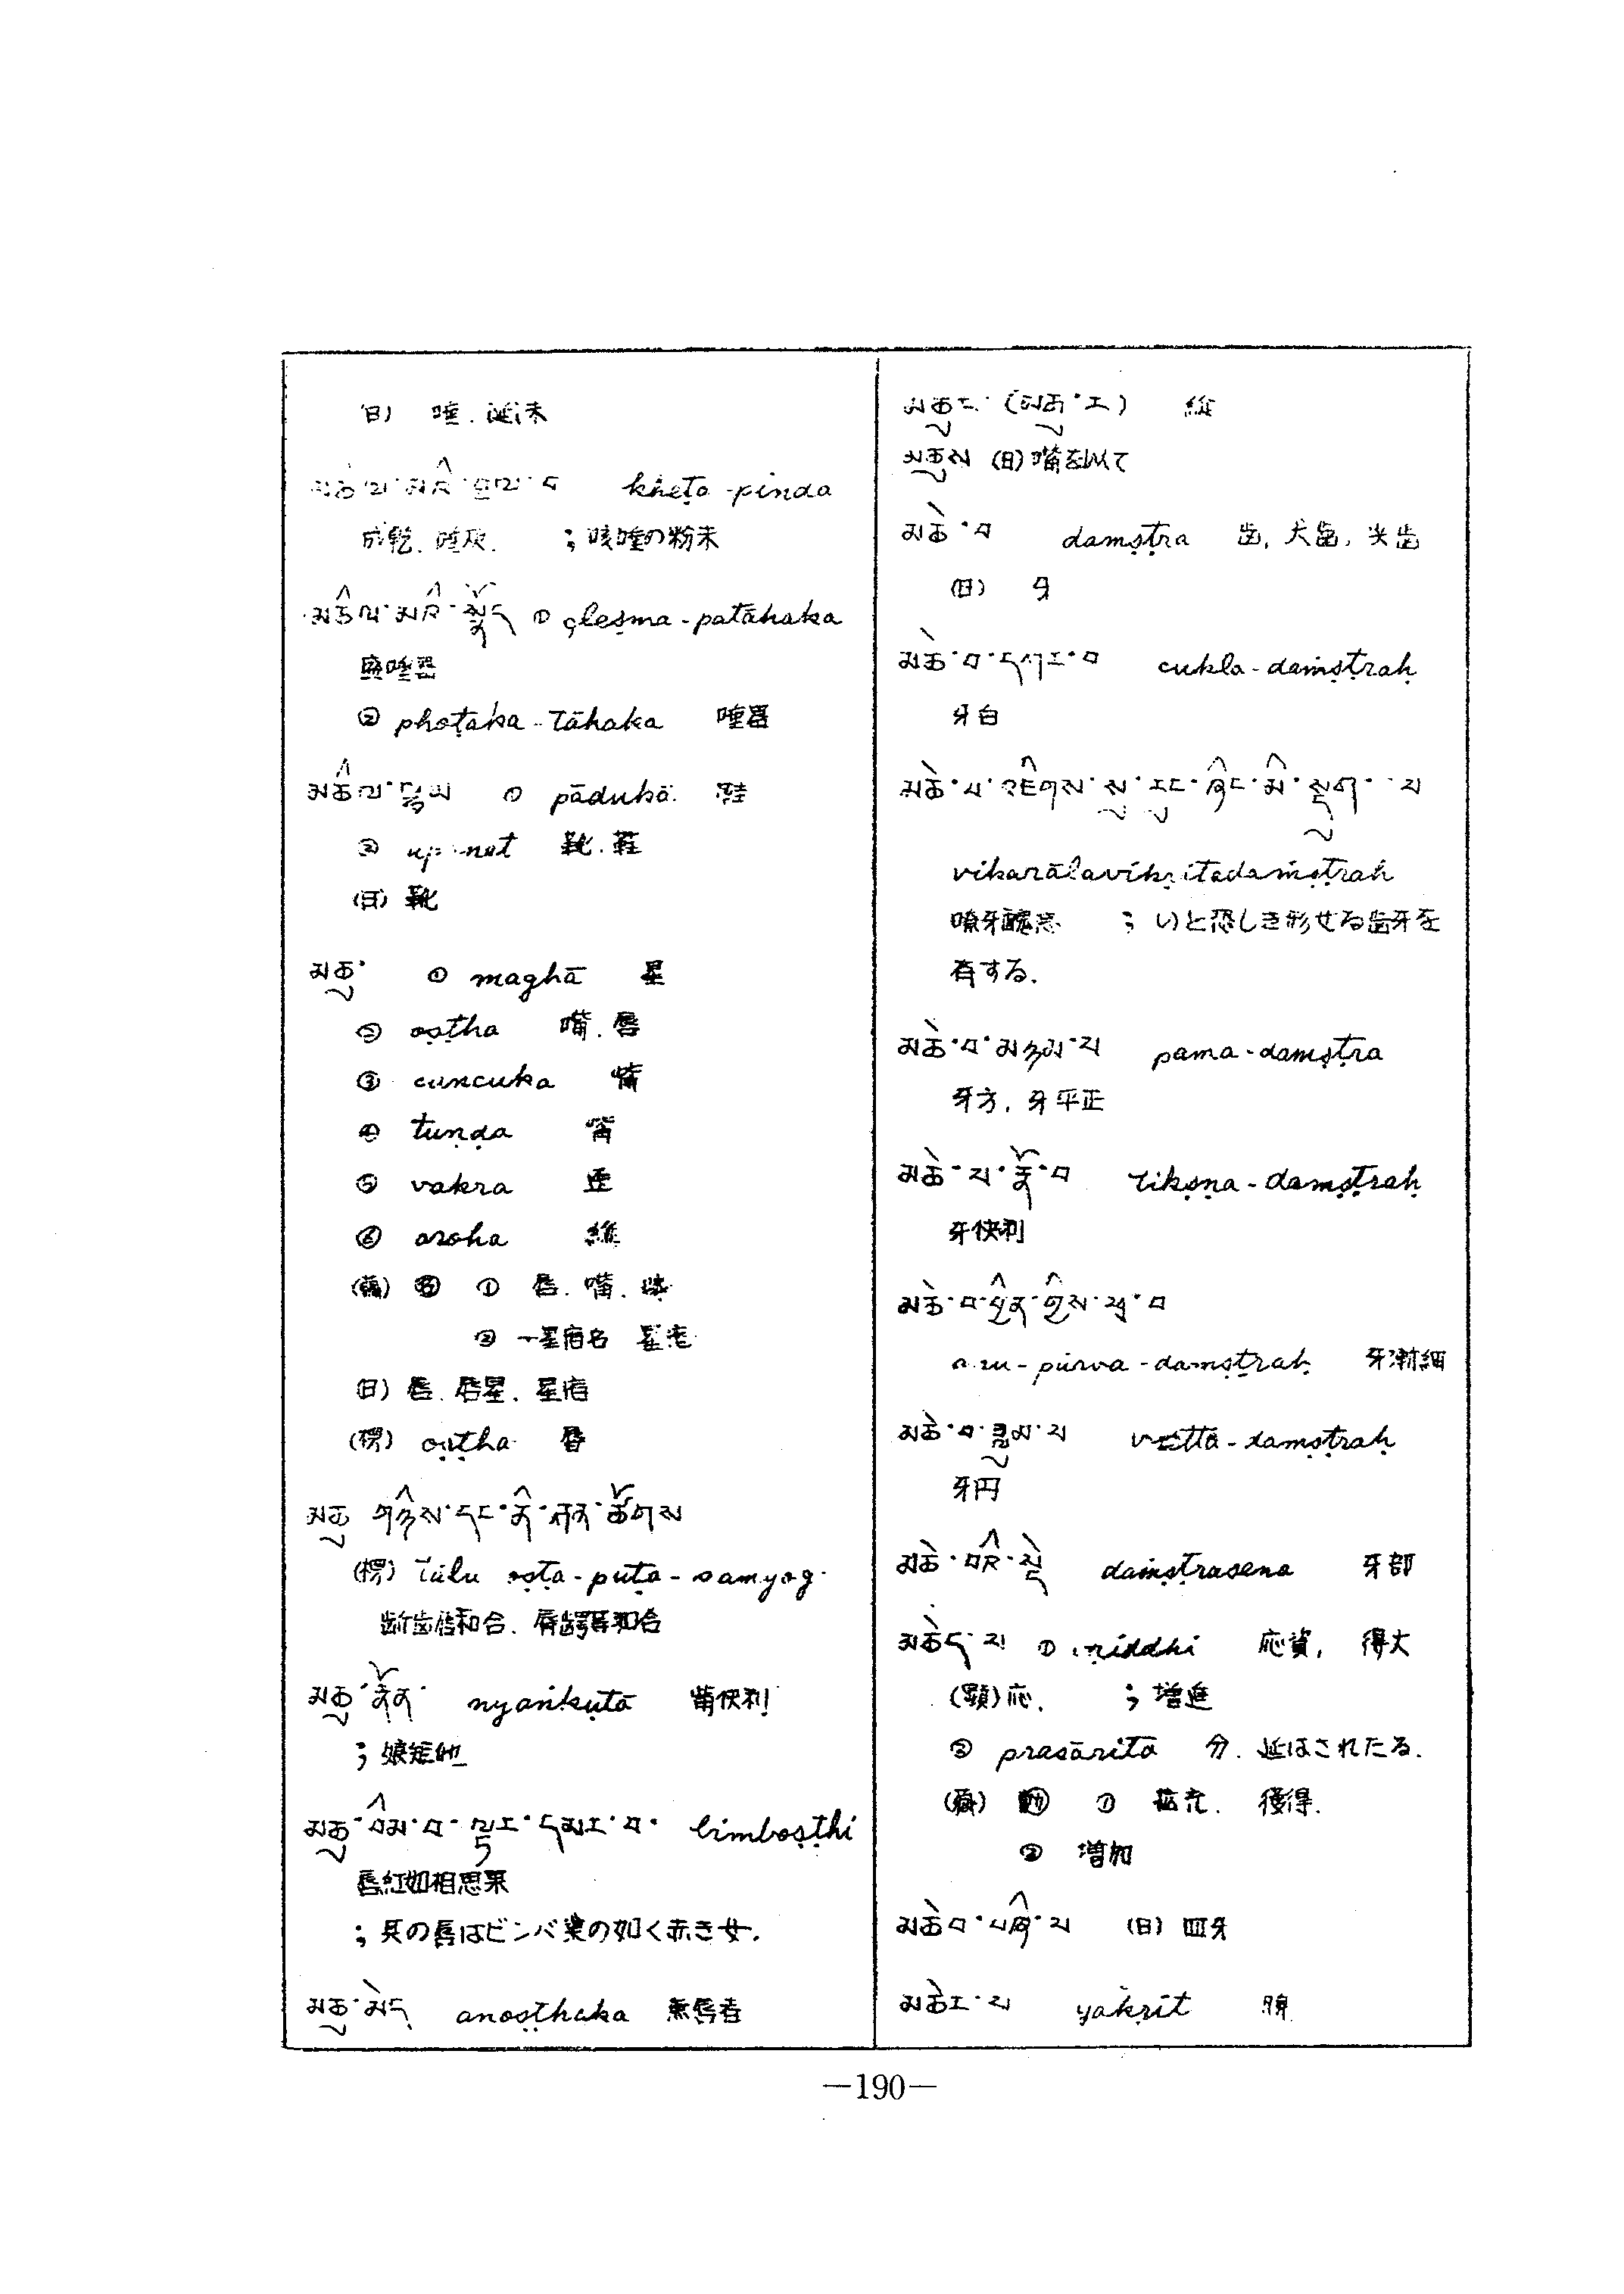 (日) 唾. 涎沫
kheṭa-pinda
; 咳唾の粉末
མཆིལ་མའི་སྣོད ① çleṣma-patāhaka
唾器
② phoṭaka-tāhaka 唾器
མཆིལ་ལྷམ ① pādukā. 鞋
② 靴. 鞋
(日) 靴
མཆུ་ ① maghā 星
② oṣṭha 嘴. 唇
③ cuncuka 嘴
④ tuṇḍa 嘴
⑤ vakra 歪
⑥ aroha 維
(蔵) 名 ① 唇. 嘴.
② 一星宿名
(日) 唇. 唇星. 星宿
(楞) oṣṭha 唇
མཆུ གཉིས་དང་ནི་རྐན་ཚོགས
(楞) tālu oṣṭa-puṭa-samyog
齗歯唇和合. 唇齶等和合
མཆུ་རྣོན་ nyaṅkuṭā 觜快利
; 娘矩吒
མཆུ་བིམ་བ་ལྟར་དམར་བ་ bimboṣṭhi
唇紅如相思果
; 其の唇はビンバ菓の如く赤き女.
མཆུ་མེད anoṣṭhaka 無唇者
མཆུར་ (མཆུ་ར) 維
མཆུས (日) 嘴を以て
མཆེ་བ damṣṭra 歯, 犬歯, 尖歯
(日) 牙
མཆེ་བ་དཀར་བ cukla-daṁṣṭraḥ
牙白
མཆེ་བ་འཇིགས་སུ་རུང་ཞིང་མི་སྡུག་པ
vikarālavikṛitadaṁṣṭrah
; いと恐しき形せる歯牙を
有する.
མཆེ་བ་མཉམ་པ pama-damṣṭra
牙方, 牙平正
མཆེ་བ་རྣོ་བ tikṣṇa-damṣṭraḥ
牙快利
མཆེ་བ་བྱིན་གྱིས་ཕྲ་བ
anu-pūrva-damṣṭraḥ 牙漸細
མཆེ་བ་ཟླུམ་པ vṛttā-damṣṭraḥ
牙円
མཆེ་བའི་སྡེ daṁṣṭrasena 牙部
མཆེད་པ ① ṛiddhi 応資, 得大
(顕)応. ; 増進
② prasāritā 分. 延ばされたる.
(蔵) 動 ① 拡充. 獲得.
② 増加
མཆེ་བ་བཞི་པ (日) 四牙
མཆེར་པ yakṛit 脾
—190—